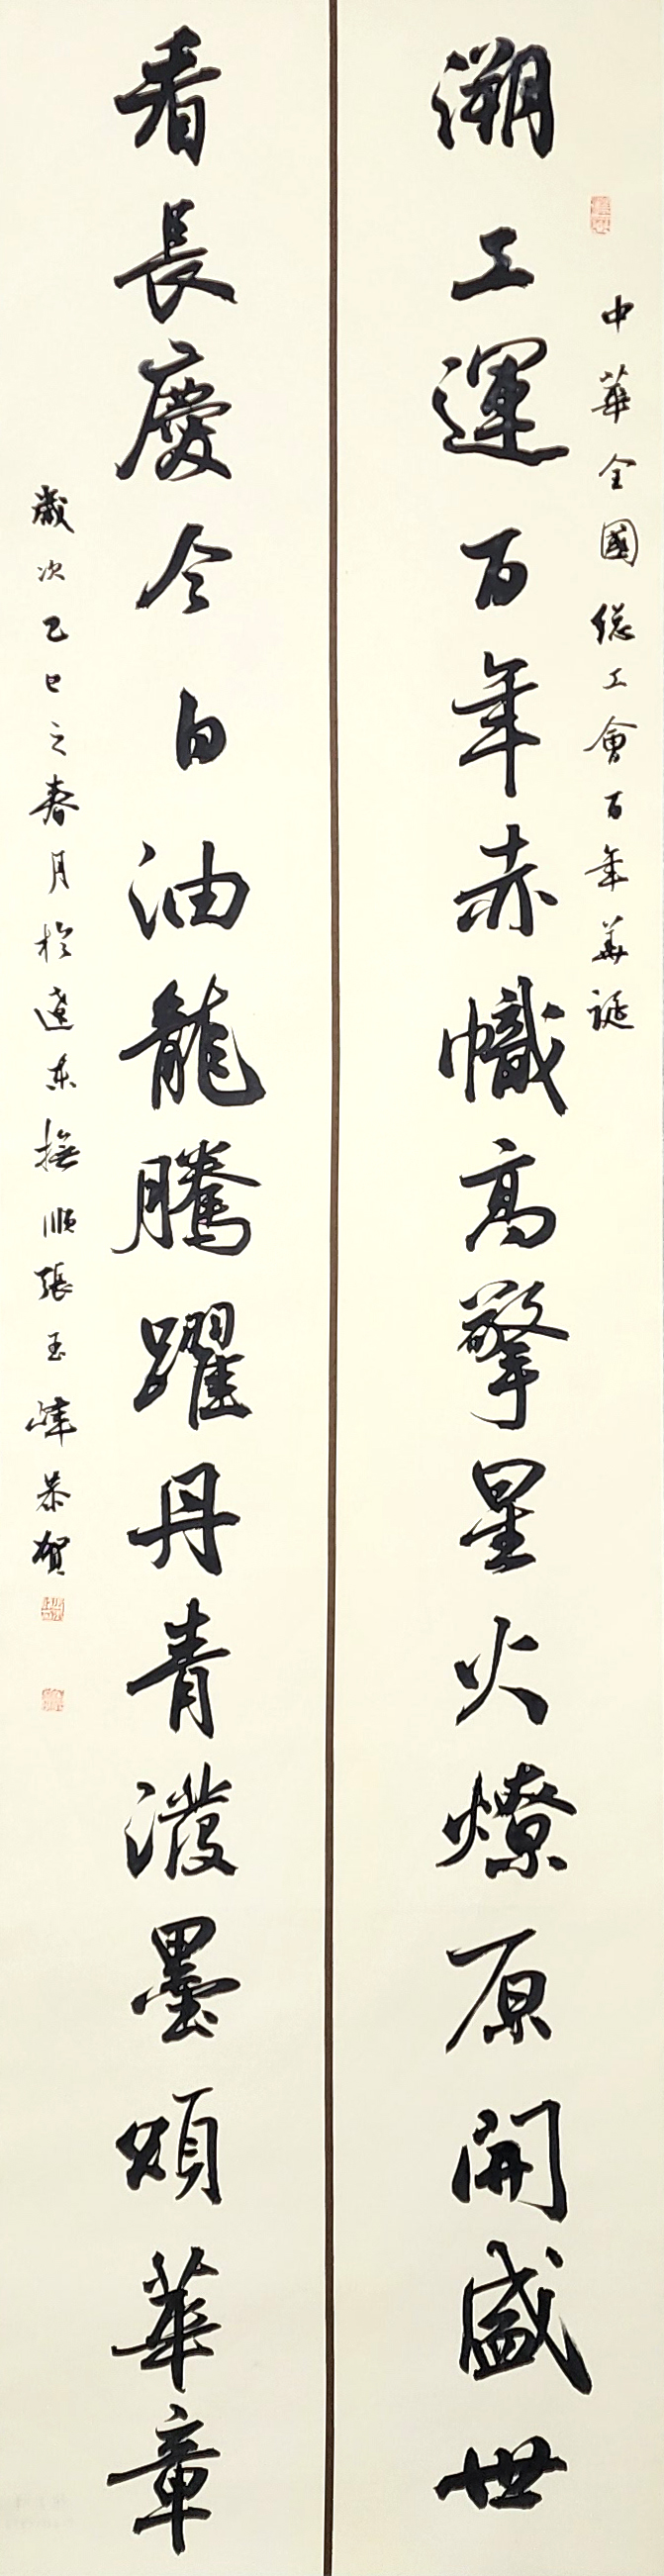 中華全國總工會百年華誕
溯工運百年赤幟高擎星火燎原開盛世
看長慶今日油龍騰躍丹青潑墨頌華章
歲次乙巳之春月於遼東撫順張玉峰恭賀